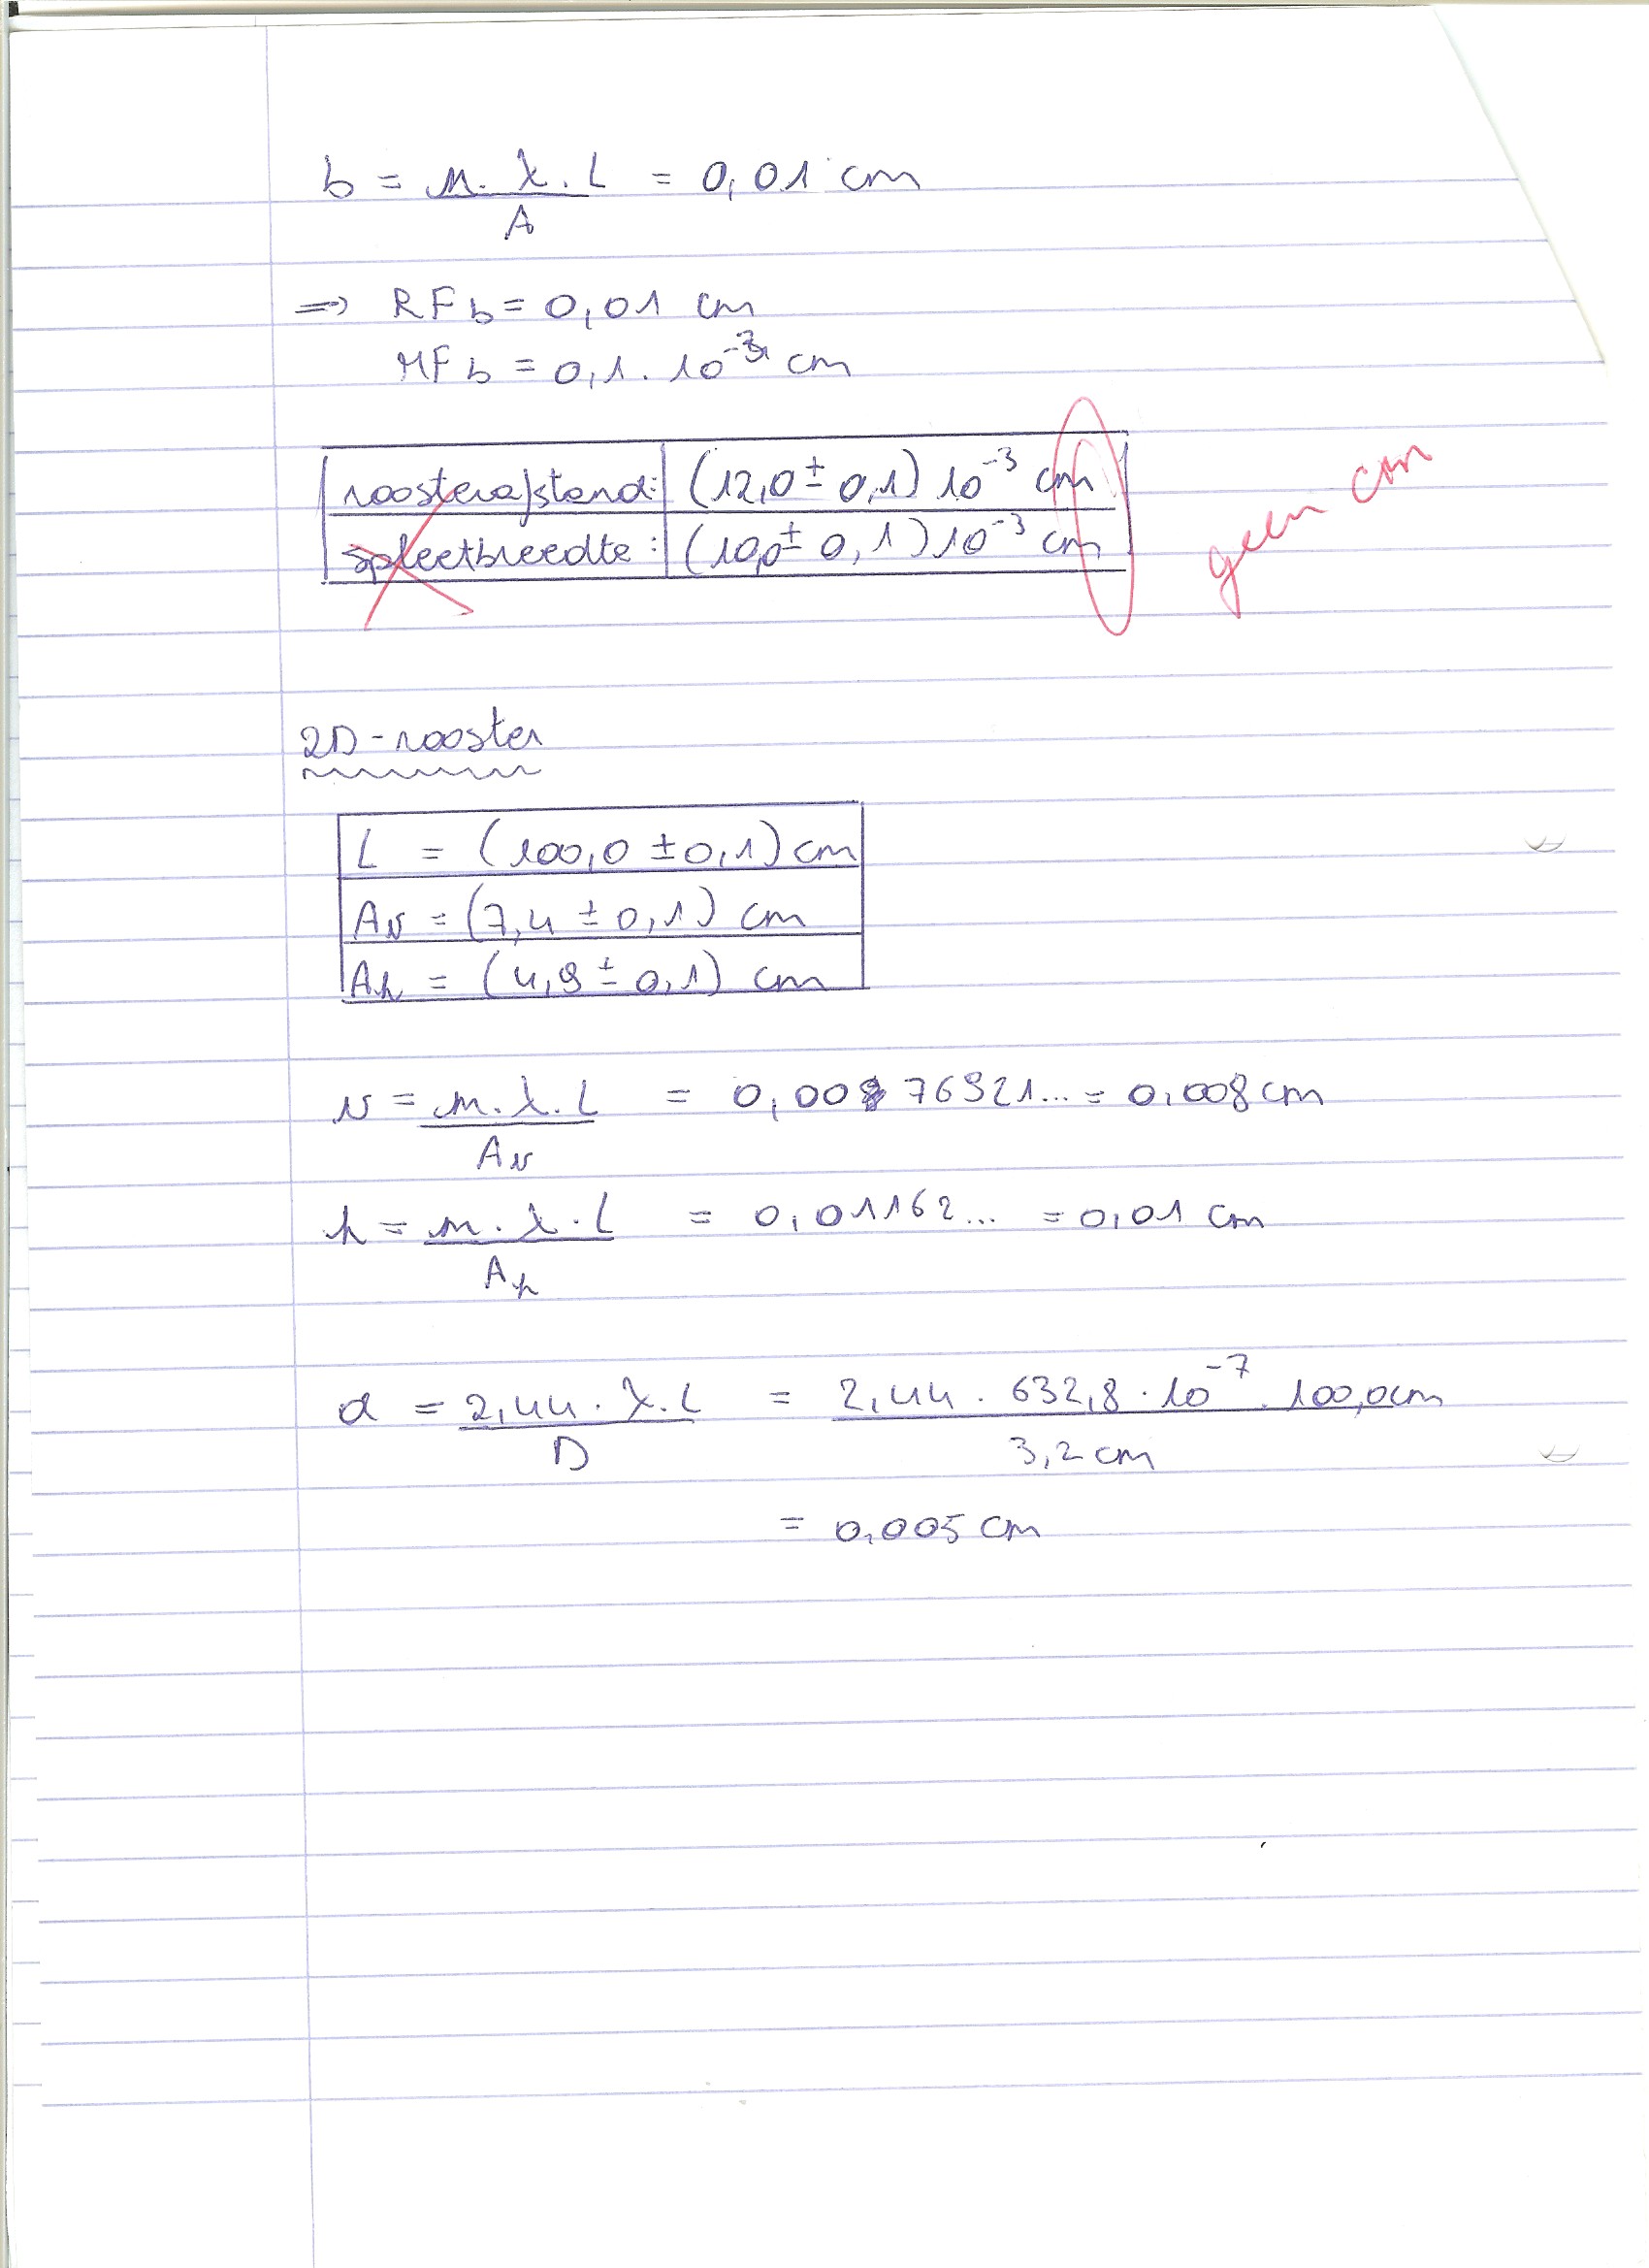 b = n.λ.L / A = 0,01 cm
=> RF b = 0,01 cm
MF b = 0,1 . 10⁻³ cm
roosterafstand: (12,0 ± 0,1) 10⁻³ cm
spleetbreedte: (10,0 ± 0,1) 10⁻³ cm
geen cm
2D-rooster
L = (100,0 ± 0,1) cm
Av = (7,4 ± 0,1) cm
Ah = (4,9 ± 0,1) cm
v = m.λ.L / Av = 0,00876921... = 0,008 cm
h = m.λ.L / Ah = 0,01162... = 0,01 cm
d = 2,44.λ.L / D = 2,44 . 632,8 . 10⁻⁷ . 100,0cm / 3,2 cm
= 0,005 cm